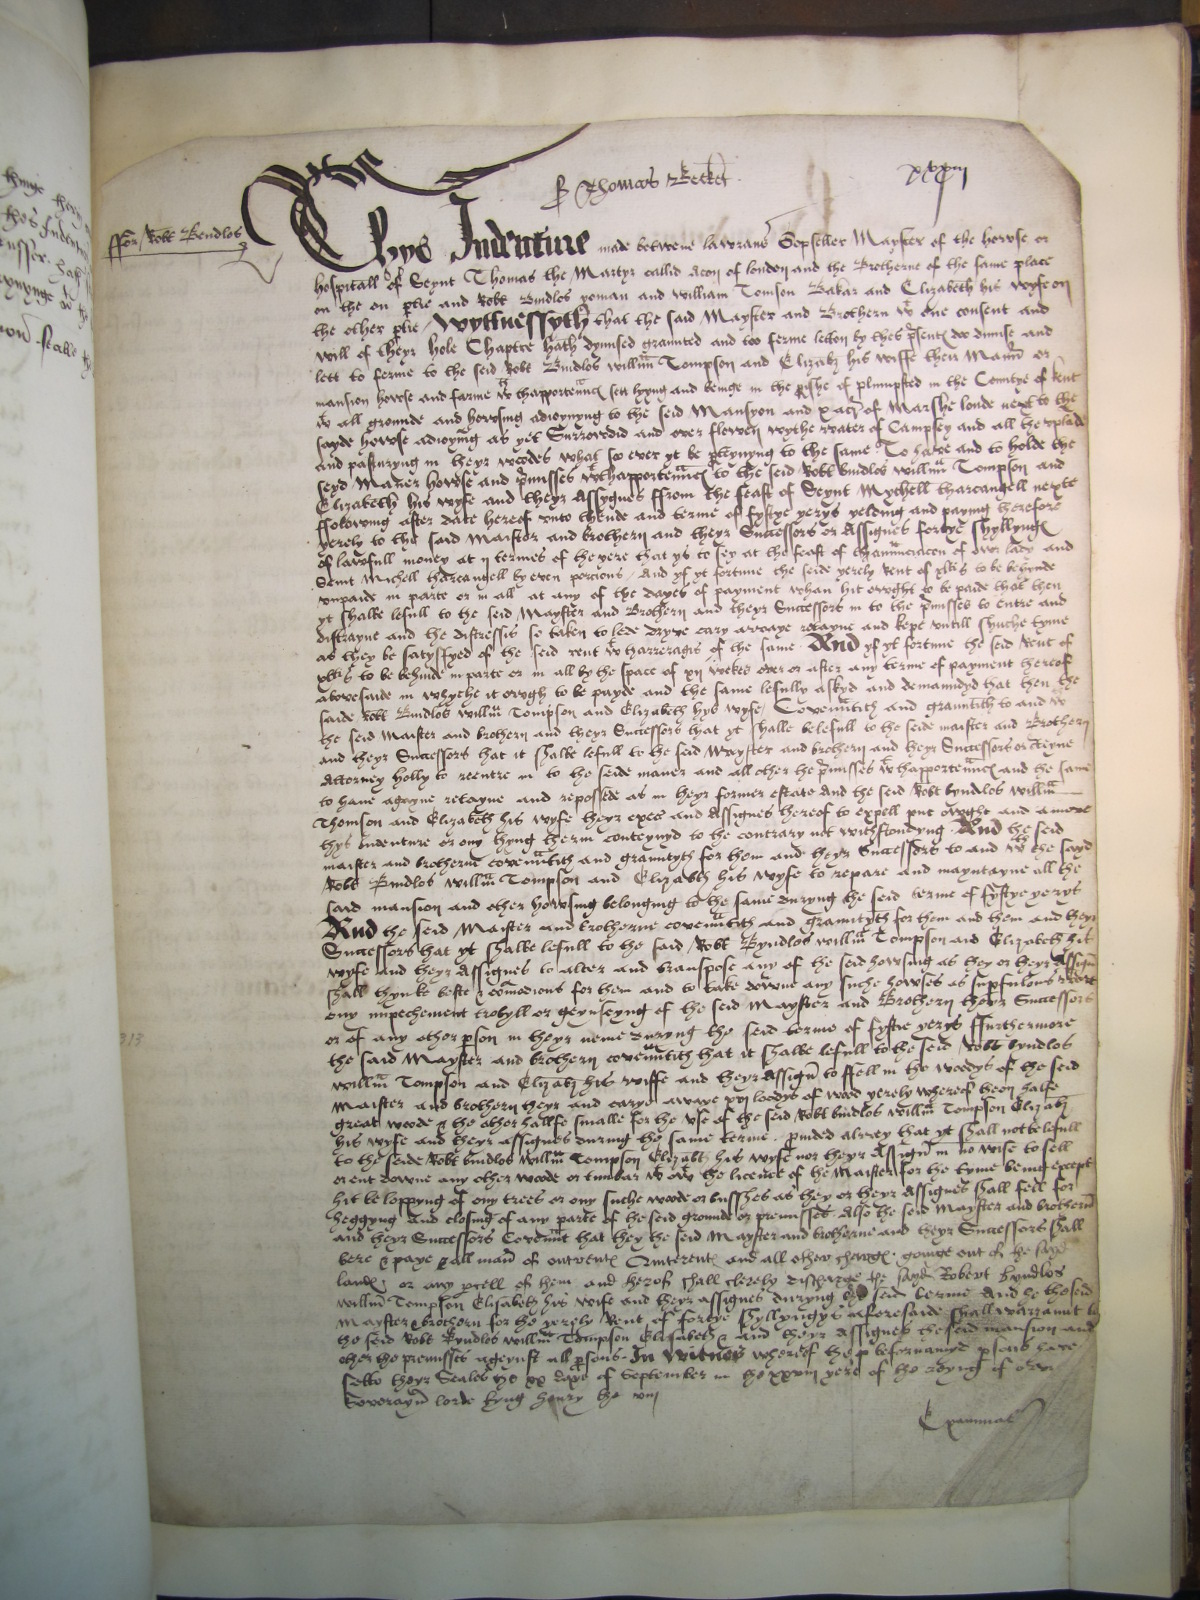 S Thomas Becket
xxviii
ffor Robt Bendlos
Thys Indenture made betwene lawrans Copseller Mayster of the howse or
hospitall of Seynt Thomas the Martyr callid Acon of london and the Brotherne of the same place
on the on ptie and Robt Bindlos yoman and William Tomson Bakar and Elizabeth his wyfe on
the other ptie Wyttnessyth that the said Mayster and Brothern wt one consent and
will of theyr hole Chaptre hath dymised graunted and too ferme letton by thes psent doo dimise and
lett to ferme to the seid Robt Bindlos willm Tompson and Elizabz his wiffe their Mann or
mansion howse and farme wt thapportennc sett lyyng and beinge in the pishe of plumpsted in the Comtye of kent
wt all grounde and howsing adioynyng to the seid Mansyon and x acr of Marshe londe next to the
sayde howse adioynng as yet Surrowdid and over flowen wythe water of Tampsey and all the vplade
and pasturyng in theyr woodes what so ever yt be pteynyng to the same To have and to holde the
seyd Maner howse and pmisses wt thapportennc to the seid Robt bindlos willm Tompson and
Elizabeth his wyfe and theyr Assygnes ffrom the feast of Seynt Mychell tharcangell nexte
ffolowing after date hereof unto thende and terme of fyftye yerys yelding and paying therefore
yerely to the said Maister and brothern and theyr Successors or Assignes fortye shyllyng
of lawfull money at ii termes of the yere that ys to sey at the feast of thannunciacon of owr lady and
Seint Michell tharcangell by even porcions / And yf yt fortune the seide yerely Rent of xls to be behynde
unpaide in parte or in all at any of the dayes of payment whan hit owght to be paide that then
yt shalbe lefull to the seid Mayster and Brothern and theyr Successors in to the pmisses to entre and
distrayne and the distressis so taken to lede dryve cary awaye retayne and kepe untill suche tyme
as they be satysfyed of the seid rent wt tharreragis of the same And yf yt fortune the seid Rent of
xls to be behinde in parte or in all by the space of xii wekes over or after any terme of payment thereof
abovesaide in whyche it owgh to be payde and the same lefully askyd and demaundyd that then the
saide Robt Bindlos willm Tompson and Elizabeth hys wyfe Covenntith and grauntith to and wt
the seid Maister and brothern and theyr Successors that yt shalle belefull to the seide maister and Brothern
and theyr Successors that it shalbe lefull to the seid Mayster and brothern and theyr Successors or theyre
Attorney holly to reentre in to the seide maner and all other the pmisses wt thapportennc and the same
to have agayne retayne and repossede as in theyr former estate And the seid Robt byndlos willm
Thomson and Elizabeth his wyfe theyr exec and Assignes hereof to expell put owght and amove
thys indenture or ony thyng therin conteynyd to the contrary not withstondyng And the seid
maister and brotherne covenntith and grauntyth for them and theyr Successors to and wt the sayd
Robt Bindlos willm Tompson and Elizabth his wyfe to repare and mayntayne all the
said mansion and other howsing belonging to the same duryng the seid terme of fyftye yerys
And the seid Maister and brotherne covenntith and grauntyth for them and them and theyr
Successors that yt shalbe lefull to the said Robt Byndlos willm Tompson and Elizabeth his
wyfe and theyr Assignes to alter and transpose any of the seid howsing as they or theyr Assign
shall thynke beste & comodious for them and to take downe any suche howses as supfulous wtowt
eny impechement trobyll or geynseyng of the seid Mayster and Brothern theyr Successors
or of any other pson in theyr neme duryng the seid terme of fyftie yerys ffurthermore
the said Mayster and brothern covenntith that it shalbe lefull to the seid Robt byndlos
willm Tompson and Elizabz his wiffe and theyr Assign to ffell in the woodys of the seid
Maister and brothern theyr and carye awaye xvi loodys of wood yerely whereof beon halfe
great woode & the other hallfe smalle for the use of the seid Robt bindlos willm Tompson Elizabz
his wyfe and theyr assignes during the same terme. pvided alwey that yt shall not belefull
to the seide Robt bindlos willm Tompson Elizabz his wyfe nor theyr Assign in no wise to sell
or cut downe any other woode or timbar wt owt the licence of the Maister for the tyme being except
hit be loppyng of ony trees or ony suche woode or busshes as they or theyr Assignes shall fele for
heggyng and closing of any parte of the seid grounde or premisses Also the seid Mayster and brothern
and theyr Successors Covennt that they the seid Mayster and brotherne and theyr Successors shall
bere & paye all mañ of outrent Quiterent and all other charg goinge out of the sayd
land or any pcell of them and therof shall clerely discharge the sayd Robert byndlos
willm Tompson Elisabeth his wife and theyr assignes duryng the seid terme And the the seid
Mayster & brothern for the yerely Rent of fortye shyllyngys aforesaide shall warrannt to
the seid Robt Byndlos willm Tompson Elisabeth & and theyr Assignes the seid mansion and
other the premisses ageynst all psons. In Witnes whereof the p beforenamyd psons have
sette theyr Seales the xx daye of September in the xxviii yere of the reyng of owr
Soverayn lorde kyng henry the viii
Examinat
313